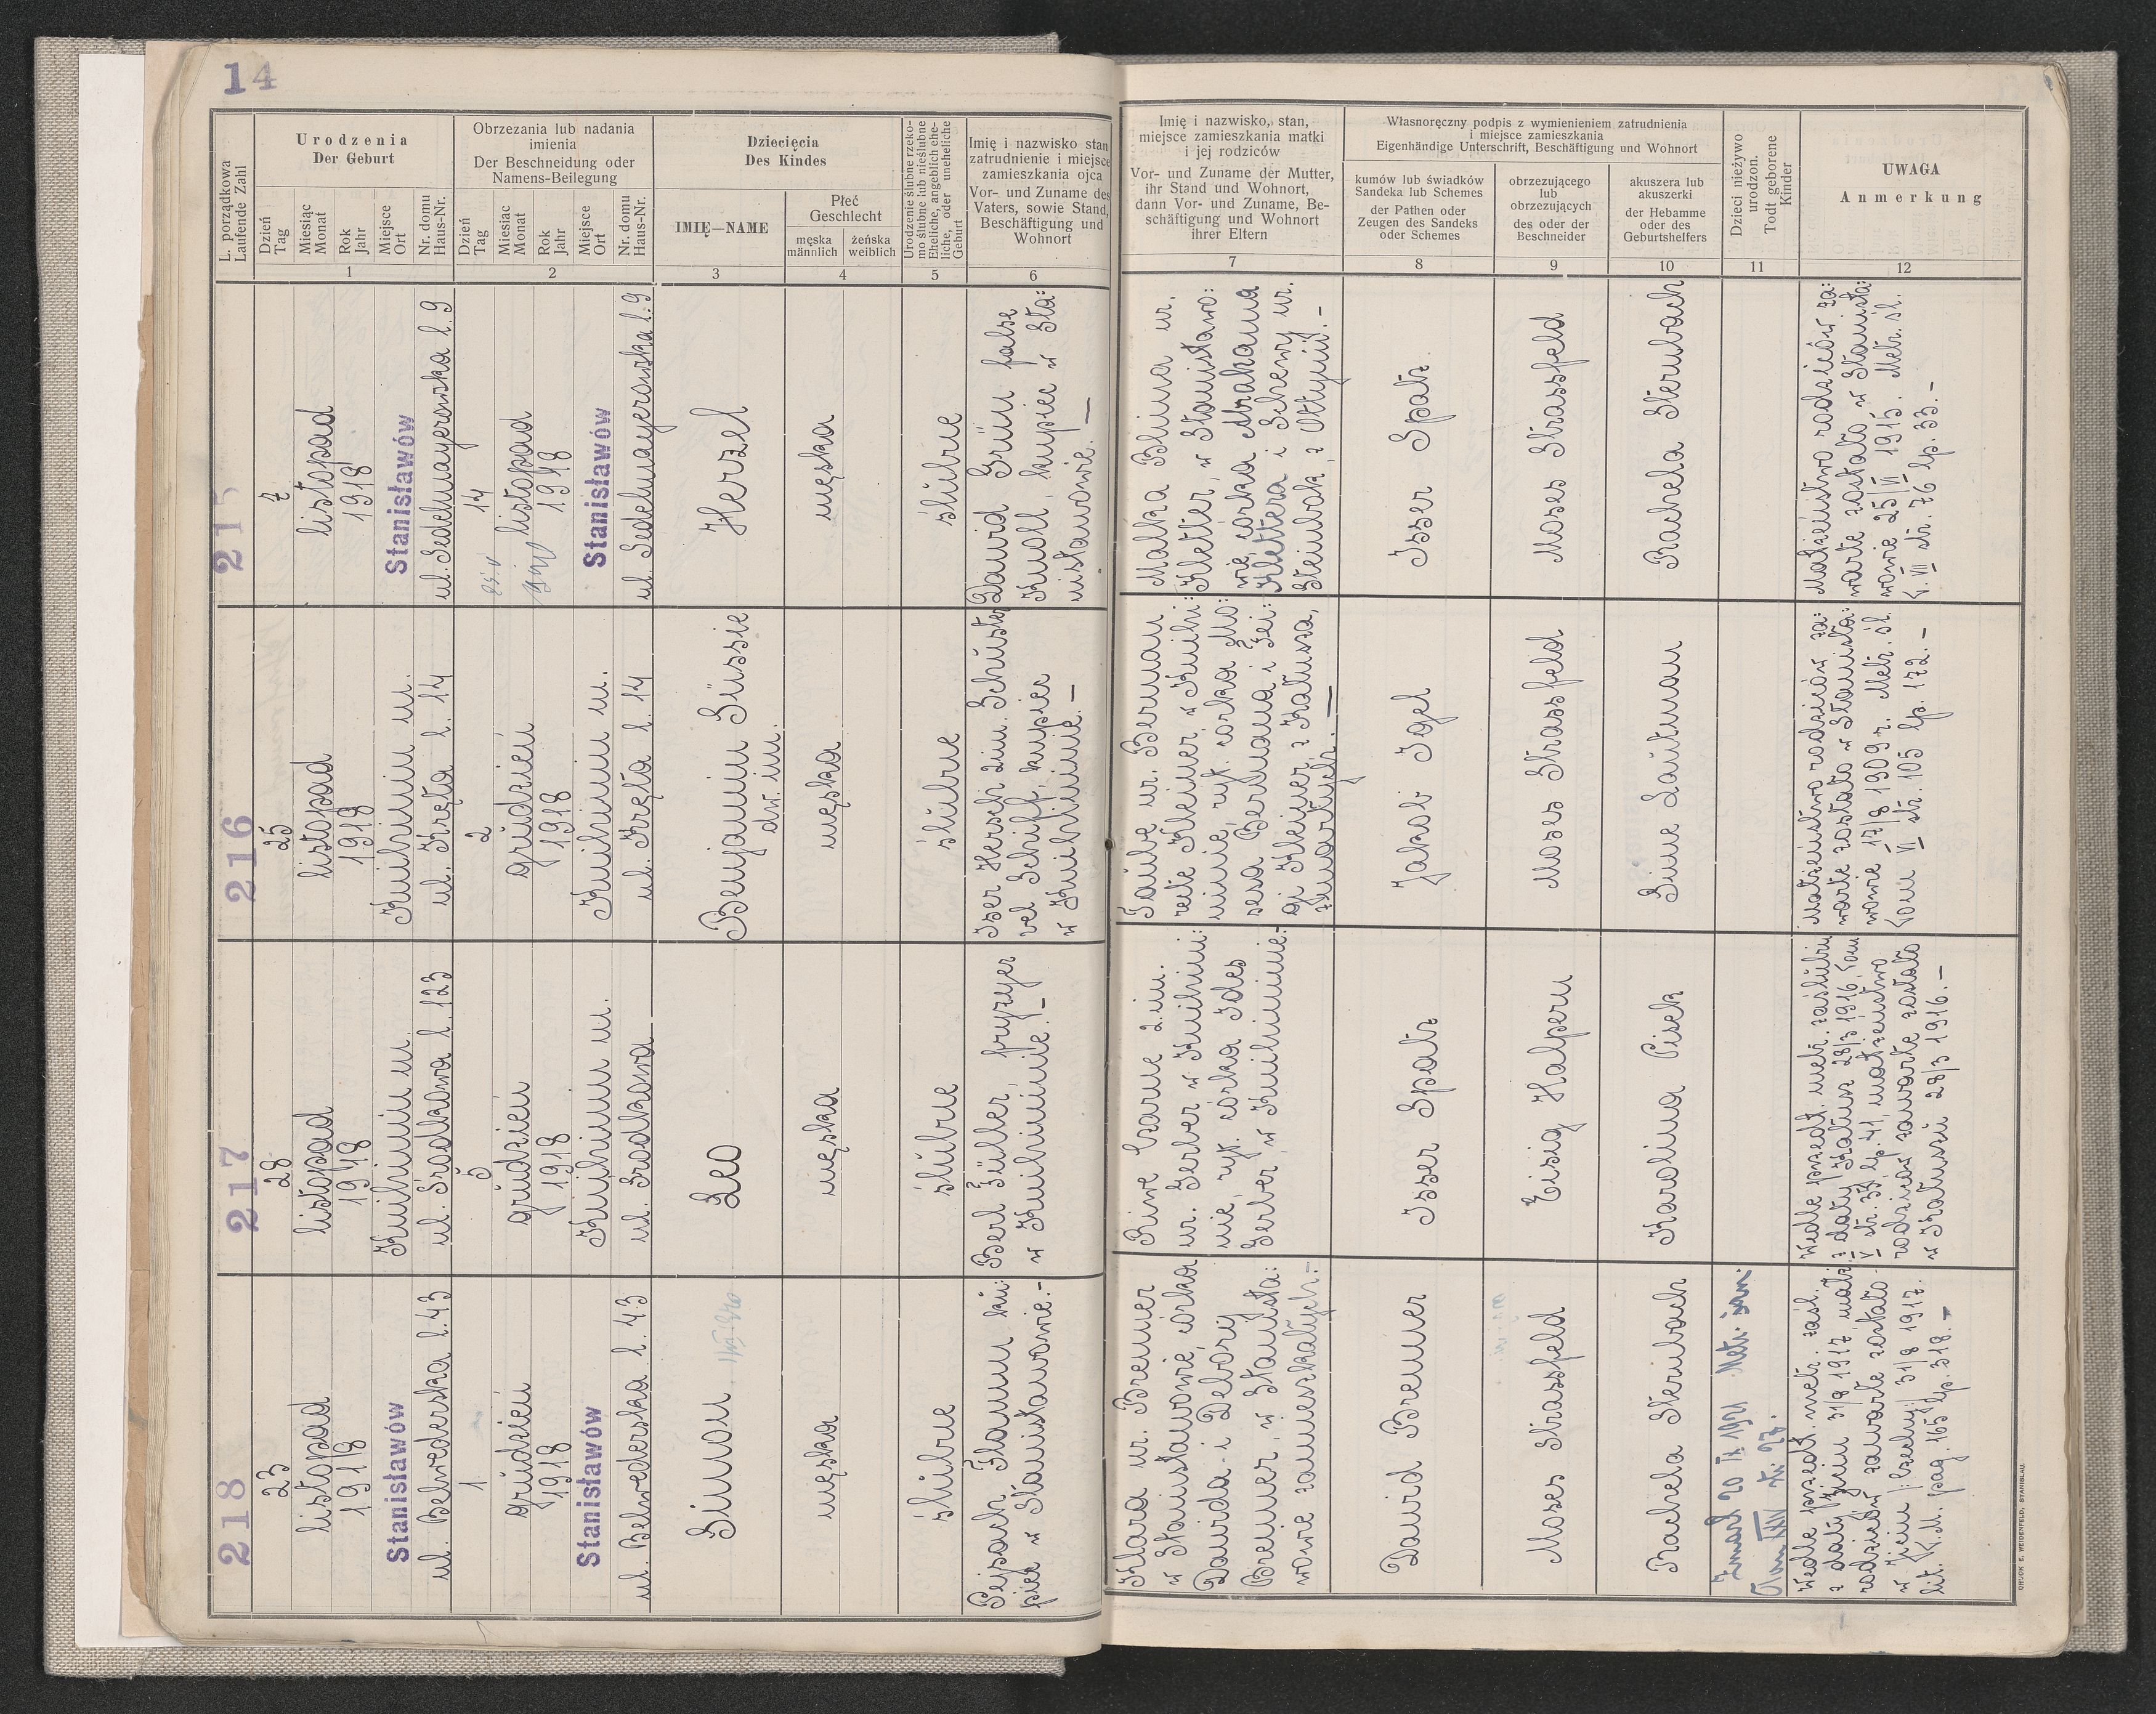 14
L. porządkowa
Laufende Zahl
Urodzenia
Der Geburt
Dzień
Tag
Miesiąc
Monat
Rok
Jahr
Miejsce
Ort
Nr. domu
Haus-Nr.
1
Obrzezania lub nadania
imienia
Der Beschneidung oder
Namens-Beilegung
Dzień
Tag
Miesiąc
Monat
Rok
Jahr
Miejsce
Ort
Nr. domu
Haus-Nr.
2
Dziecięcia
Des Kindes
IMIĘ—NAME
3
Płeć
Geschlecht
męska
männlich
żeńska
weiblich
4
Urodzenie ślubne rzeko-
mo ślubne lub nieślubne
Eheliche, angeblich ehe-
liche, oder uneheliche
Geburt
5
Imię i nazwisko stan
zatrudnienie i miejsce
zamieszkania ojca
Vor- und Zuname des
Vaters, sowie Stand,
Beschäftigung und
Wohnort
6
Imię i nazwisko, stan,
miejsce zamieszkania matki
i jej rodziców
Vor- und Zuname der Mutter,
ihr Stand und Wohnort,
dann Vor- und Zuname, Be-
schäftigung und Wohnort
ihrer Eltern
7
Własnoręczny podpis z wymienieniem zatrudnienia
i miejsce zamieszkania
Eigenhändige Unterschrift, Beschäftigung und Wohnort
kumów lub świadków
Sandeka lub Schemes
der Pathen oder
Zeugen des Sandeks
oder Schemes
8
obrzezującego
lub
obrzezujących
des oder der
Beschneider
9
akuszera lub
akuszerki
der Hebamme
oder des
Geburtshelfers
10
Dzieci nieżywo
urodzon.
Todt geborene
Kinder
11
UWAGA
Anmerkung
12
215
7
listopad
1918
Stanisławów
ul. Sedelmayerowska l. 9
14
listopad
1918
Stanisławów
ul. Sedelmayerowska l. 9
Herzel
męska
ślubne
Dawid Grün false
Knoll, kupiec w Sta:
nisławowie. —
Malka Blima ur.
Kletter, w Stanisławo:
wie, córka Abrahama
Klettera i Scheny ur.
Steinbok, z Ottynii. -
Isser Spatz
Moses Strassfeld
Rachela Sternbach
Małżeństwo rodziców za:
warte zostało w Stanisła:
wowie 25/VI 1915. Metr. śl.
t. VII str. 76 lp. 33. -
216
25
listopad
1918
Knihinin m.
ul. Kręta l. 14
2
grudzień
1918
Knihinin m.
ul. Kręta l. 14
Benjamin Süssie
dw. im.
męska
ślubne
Iser Hersch 2im. Schuster
vel Schiff, kupiec
w Knihininie. -
Taube ur. Berman
recte Kleiner, w Knihi:
ninie, ryt. córka Mo:
sesa Bermana i Fei:
gi Kleiner, z Kałusza,
zmarłych. —
Jakob Igel
Moses Strassfeld
Sime Lautman
Małżeństwo rodziców za:
warte zostało w Stanisła:
wowie 17/8 1909 r. Metr. śl.
tom VI str. 105 lp. 172. -
217
28
listopad
1918
Knihinin m.
ul. Środkowa l. 123
5
grudzień
1918
Knihinin m.
ul. Środkowa
Leo
męska
ślubne
Berl Füller, fryzyer
w Knihininie. -
Riwe Czarne 2 im.
ur. Gerber w Knihini:
nie, ryt. córka Ides
Gerber, w Knihininie. -
Isser Spatz
Eisig Halpern
Karolina Pisek
Wedle przedł. metr. zaślubin
z daty Kałusz 28/3 1916, tom
V str. 35 lp. 41, małżeństwo
rodziców zawarte zostało
w Kałuszu 28/3 1916. -
218
23
listopad
1918
Stanisławów
ul. Belwederska l. 43
1
grudzień
1918
Stanisławów
ul. Belwederska l. 43
Simon
męska
ślubne
Pejsach Flamm ku:
piec w Stanisławowie. -
Klara ur. Bremer
w Stanisławowie, córka
Dawida i Debory
Bremer, w Stanisła:
wowie zamieszkałych. -
Dawid Bremer
Moses Strassfeld
Rachela Sternbach
Zmarł 20 IX 1921 Metr. śm.
Wedle przedł. metr. zaśl.
z daty Żicin 31/8 1917, małż.
rodziców zawarte zostało
w Żicin /:Czechy:/ 31/8 1917.
lit. K.M. pag. 165 lp. 318. -
DRUCK E. WEIDENFELD, STANISLAU.